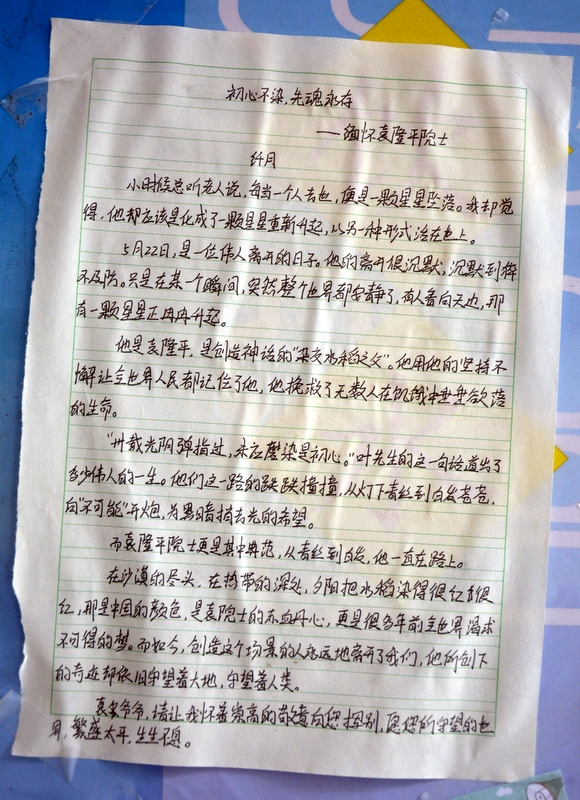 初心不染,先魂永存
——缅怀袁隆平院士
纤月
小时候总听老人说,每当一个人去世,便是一颗星星坠落。我却觉
得,他却应该是化成了一颗星星重新升起,以另一种形式活在世上。
5月22日,是一位伟人离开的日子。他的离开很沉默,沉默到猝
不及防。只是在某一个瞬间,突然整个世界都安静了,有人看向天边,那
有一颗星星正冉冉升起。
他是袁隆平,是创造神话的“杂交水稻之父”。他用他的坚持不
懈让全世界人民都记住了他,他挽救了无数人在饥饿中垂垂欲落
的生命。
“卅载光阴弹指过,未应磨染是初心。”叶先生的这一句话道出了
多少伟人的一生。他们这一路的跌跌撞撞,从灯下青丝到白发苍苍,
向“不可能”开炮,为黑暗摘去光的希望。
而袁隆平院士更是其中典范,从青丝到白发,他一直在路上。
在沙漠的尽头,在热带的深处,夕阳把水稻染得很红很
红,那是中国的颜色,是袁院士的赤血丹心,更是很多年前全世界渴求
不可得的梦。而如今,创造这个场景的人永远地离开了我们,他所创下
的奇迹却依旧守望着大地,守望着人类。
袁爷爷,请让我怀着崇高的敬意向您拜别,愿您所守望的世
界,繁盛太平,生生不息。